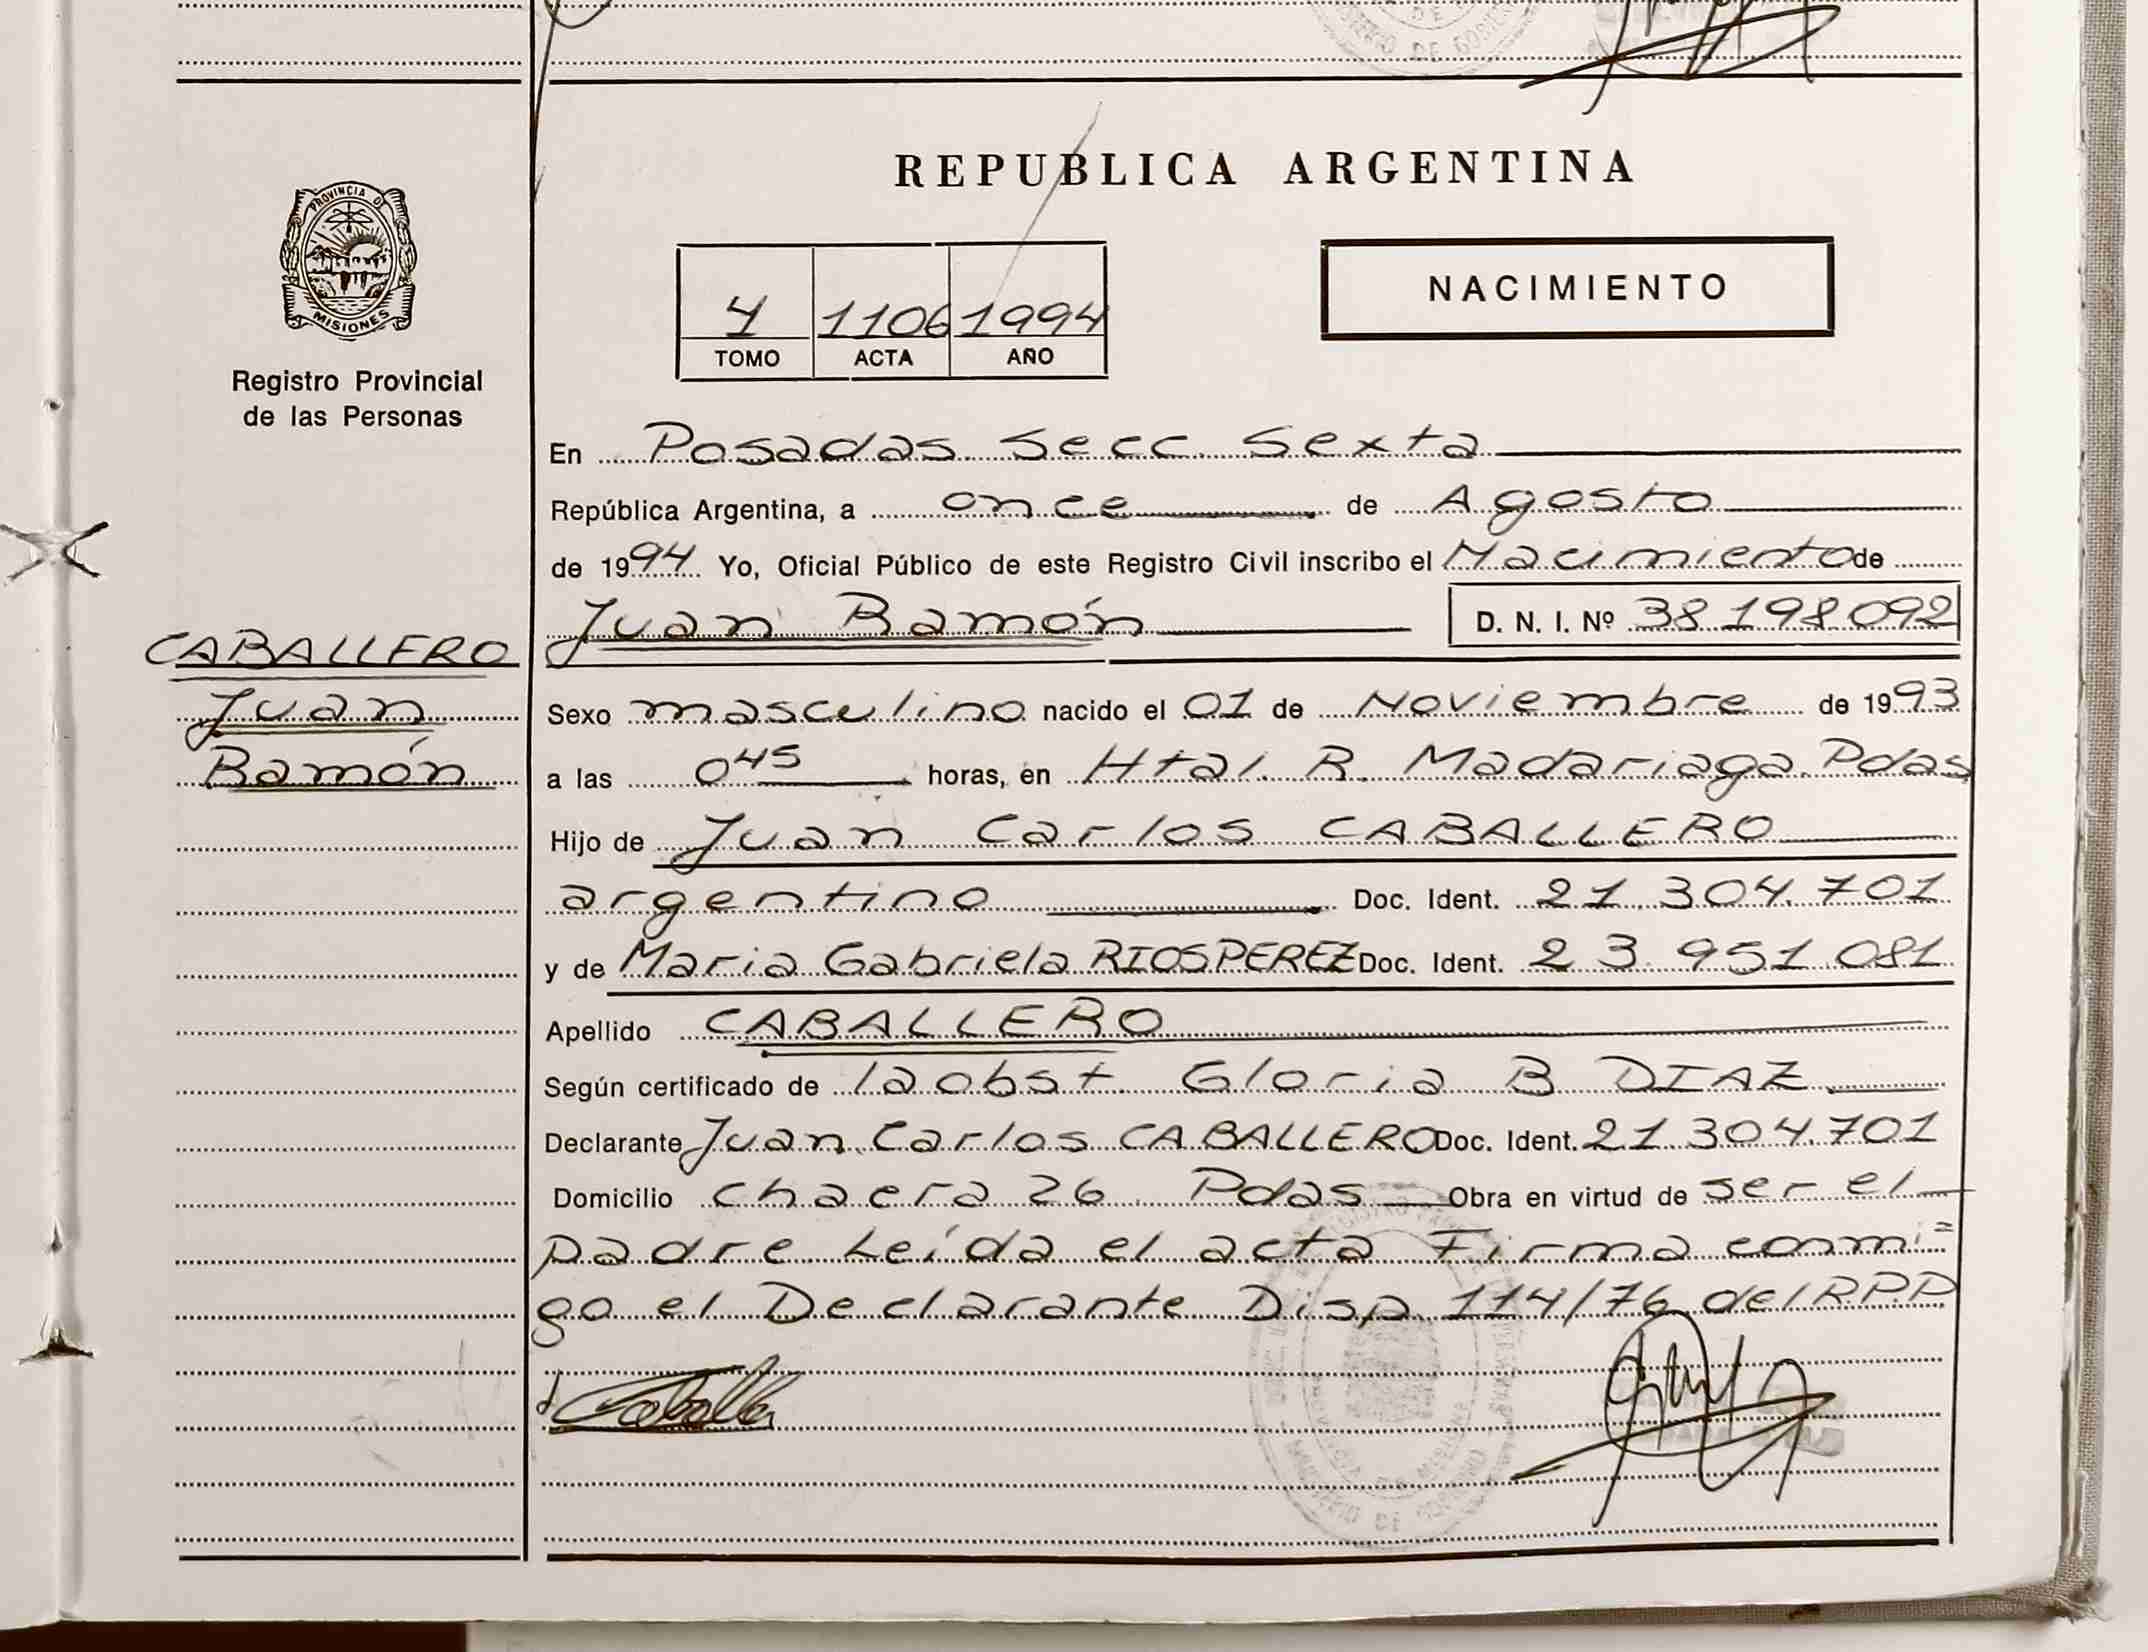 REPUBLICA ARGENTINA
PROVINCIA DE
MISIONES
Registro Provincial
de las Personas
4 1106 1994
TOMO ACTA AÑO
NACIMIENTO
En Posadas Secc Sexta
República Argentina, a once de Agosto
de 1994 Yo, Oficial Público de este Registro Civil inscribo el Nacimiento de
Juan Ramón D. N. I. Nº 38 198 092
CABALLERO
Juan
Ramón
Sexo masculino nacido el 01 de Noviembre de 1993
a las 0 45 horas, en Htal. R. Madariaga. Pdas
Hijo de Juan Carlos CABALLERO
argentino Doc. Ident. 21.304.701
y de Maria Gabriela RIOS PEREZ Doc. Ident. 23 951 081
Apellido CABALLERO
Según certificado de la obst. Gloria B DIAZ
Declarante Juan Carlos CABALLERO Doc. Ident. 21.304.701
Domicilio chacra 26 Pdas Obra en virtud de ser el
padre Leída el acta Firma conmi=
go el Declarante Disp 114/76 del R.P.P